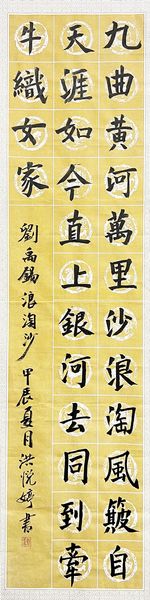 九曲黃河萬里沙浪淘風簸自
天涯如今直上銀河去同到牽
牛織女家
劉禹錫浪淘沙 甲辰夏月 洪悅婷書